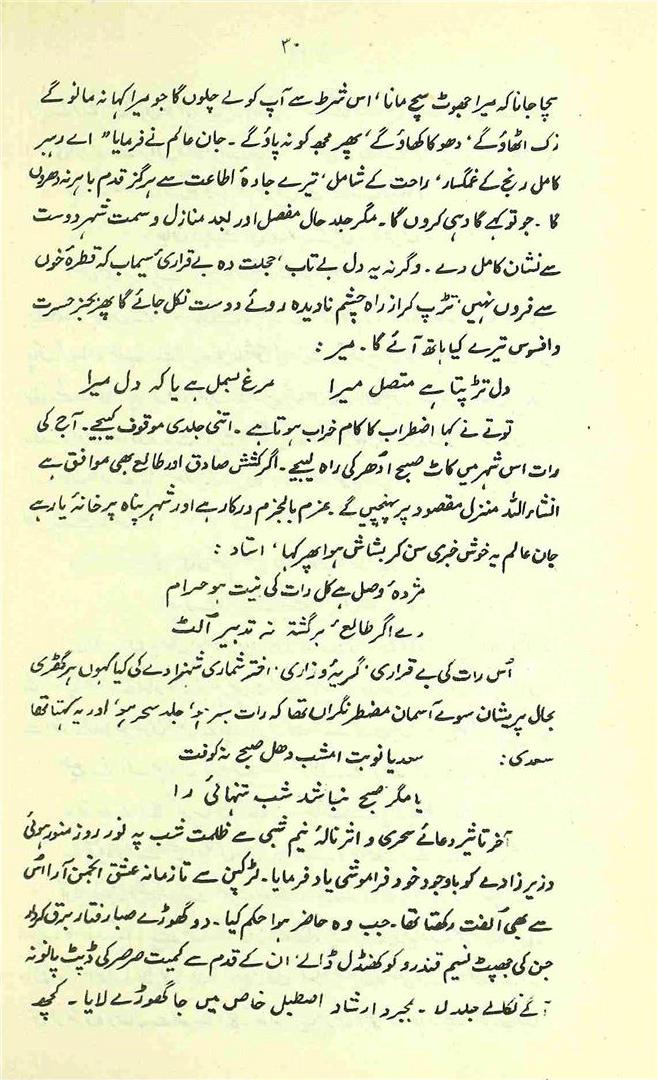 ۳۰
سچا جانا کہ میرا جھوٹ سچ مانا، اس شرط سے آپ کو لے چلوں گا جو میرا کہا نہ مانو گے
زک اٹھاؤ گے، دھوکا کھاؤ گے، پھر مجھ کو نہ پاؤ گے۔ جان عالم نے فرمایا "اے رہبر
کامل رنج کے غمگسار، راحت کے شامل، تیرے جادۂ اطاعت سے ہرگز قدم باہر نہ دھروں
گا۔ جو تو کہے گا وہی کروں گا۔ مگر جلد حال مفصل اور بعد منازل و سمت شہر دوست
سے نشان کامل دے۔ وگرنہ یہ دل بے تاب، خجلت دہ بے قراریٔ سیماب کہ قطرۂ خوں
سے فزوں نہیں، تڑپ کر از راہ چشم نادیدہ روئے دوست نکل جائے گا پھر بجز حسرت
و افسوس تیرے کیا ہاتھ آئے گا۔ میر:
دل تڑپتا ہے متصل میرا مرغ بسمل ہے یا کہ دل میرا
توتے نے کہا اضطراب کا کام خراب ہوتا ہے۔ اتنی جلدی موقوف کیجیے۔ آج کی
رات اس شہر میں کاٹ صبح ادھر کی راہ لیجیے۔ اگر کشش صادق اور طالع بھی موافق ہے
انشاء اللہ منزل مقصود پر پہنچیں گے۔ عزم بالجزم درکار ہے اور شہر پناہ پر خانۂ یار ہے
جان عالم یہ خوش خبری سن کر بشاش ہوا پھر کہا، استاد:
مژدۂ وصل ہے کل رات کی نیت ہو حرام
دے اگر طالع برگشتہ نہ تدبیر اُلٹ
اُس رات کی بے قراری، گریہ و زاری، اختر شماری شہزادے کی کیا کہوں ہر گھڑی
بحال پریشان سوے آسمان مضطر نگراں تھا کہ رات بسر ہو، جلد سحر ہو، اور یہ کہتا تھا
سعدی: سعدیا نوبت امشب دھل صبح نہ کوفت
یا مگر صبح نباشد شب تنہائی را
آخر تاثیر دعائے سحری و اثر نالۂ نیم شبی سے ظلمت شب بہ نور روز منور ہوئی
وزیر زادے کو باوجود خود فراموشی یاد فرمایا۔ لڑکپن سے تا زمانہ عشق انجمن آرا اُس
سے بھی اُلفت رکھتا تھا۔ جب وہ حاضر ہوا حکم کیا۔ دو گھوڑے صبا رفتار برق کردار
جن کی جھپٹ نسیم قندرو کو کھنڈل ڈالے، ان کے قدم سے کمیت صرصر کی ڈپٹ پانو نہ
آگے نکالے جلد لا۔ بمجرد ارشاد اصطبل خاص میں جا گھوڑے لایا۔ کچھ